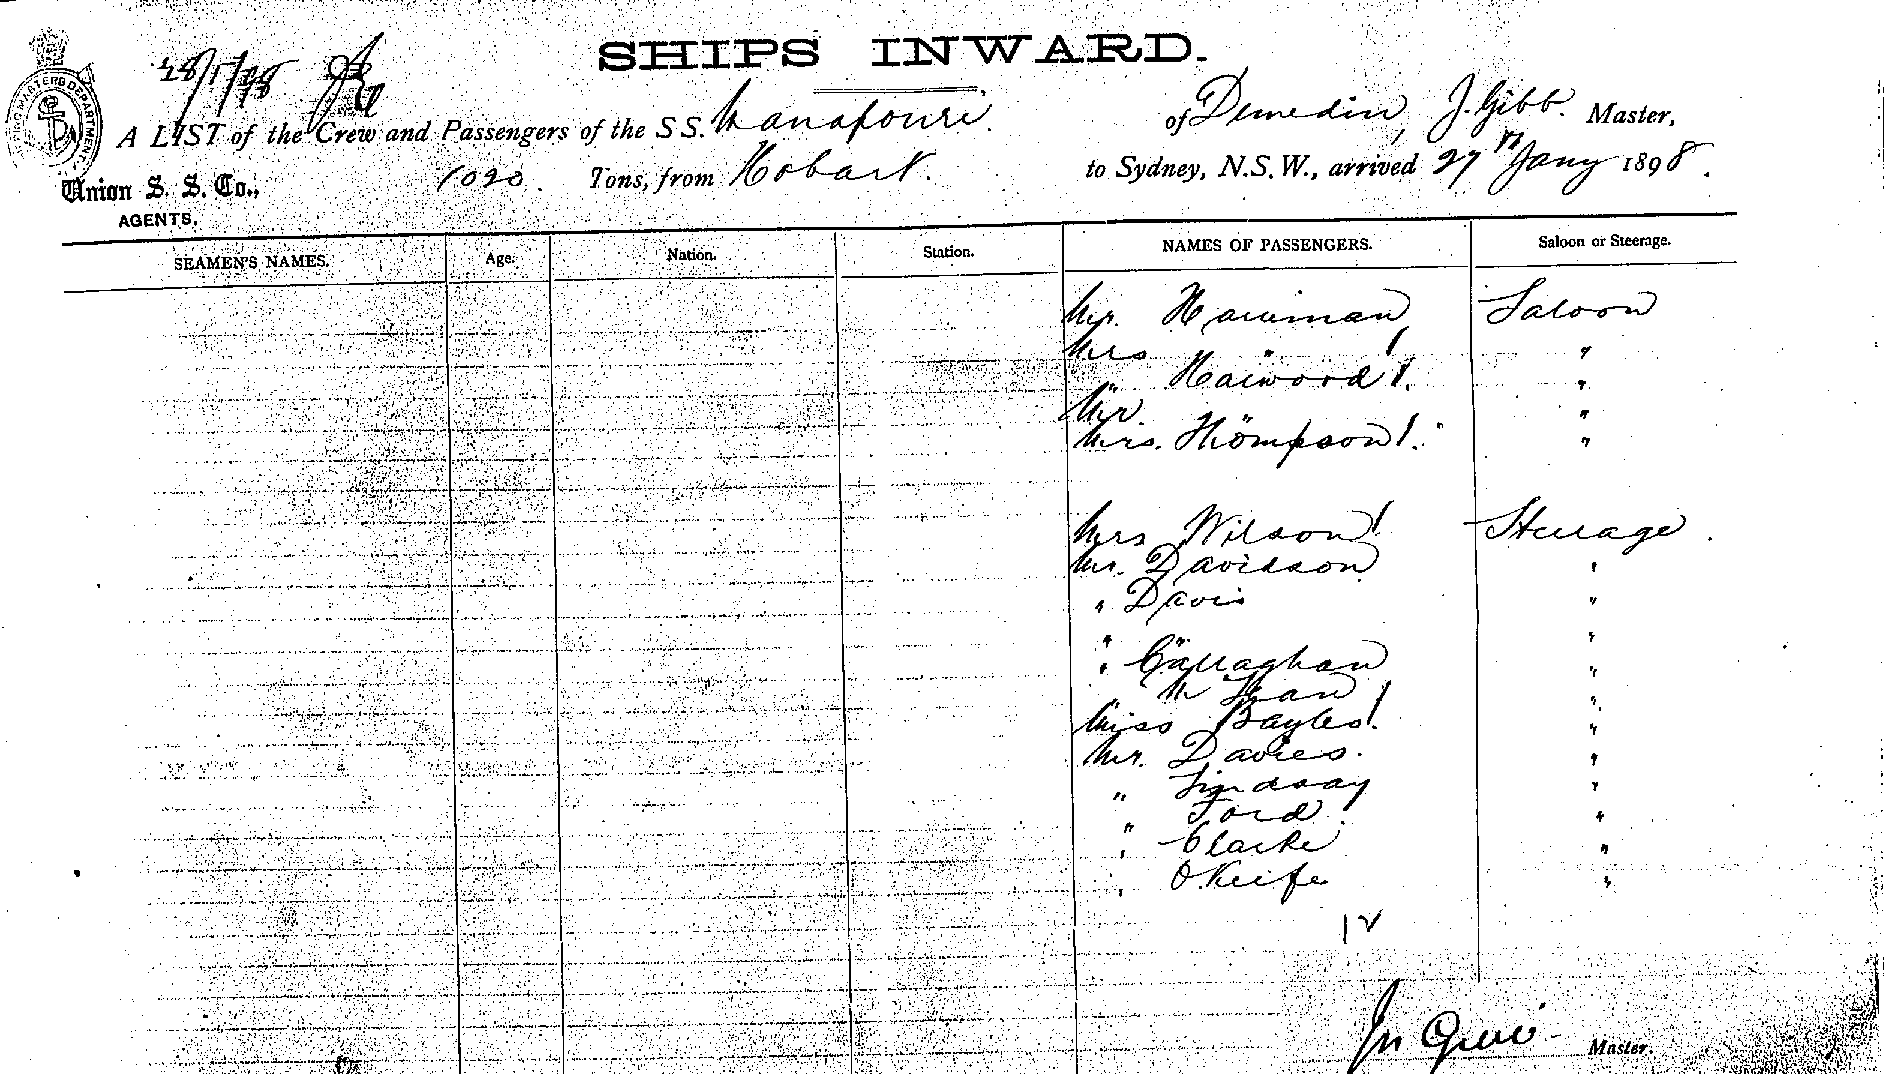 SHIPS INWARD.
28/1/98
SHIPPING MASTERS DEPARTMENT
A LIST of the Crew and Passengers of the S S. Manapouri. of Dunedin, J. Gibb. Master,
Union S. S. Co., 1020. Tons, from Hobart. to Sydney, N.S.W., arrived 27th Jany 1898.
AGENTS.
SEAMEN'S NAMES. Age. Nation. Station. NAMES OF PASSENGERS. Saloon or Steerage.
Mr. Harriman Saloon
Mrs " "
" Harwood "
Mr. " "
Mrs. Thompson "
Mrs Wilson Steerage.
Mr. Davidson "
" Davis "
" " "
" Callaghan "
"
Miss Bayles. "
Mr. Davies. "
" Lindsay "
" Ford "
" Clarke "
" O'Keife "
12
Master.